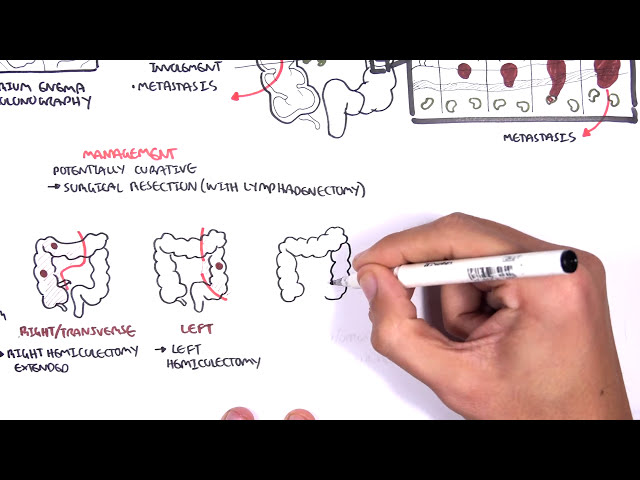 INVOLEMENT
• METASTASIS
RIUM ENEMA
OLONOGRAPHY
METASTASIS
MANAGEMENT
POTENTIALLY CURATIVE
→ SURGICAL RESECTION (WITH LYMPHADENECTOMY)
RIGHT/TRANSVERSE
→ RIGHT HEMICOLECTOMY
EXTENDED
LEFT
→ LEFT
HEMICOLECTOMY